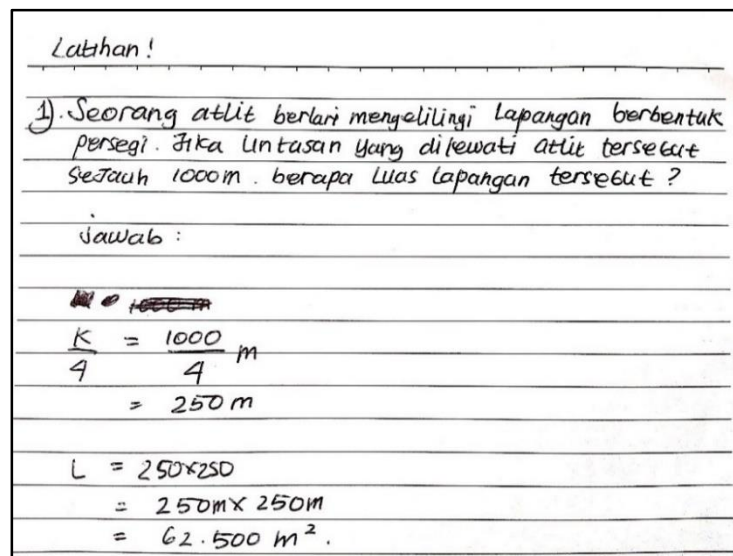 Latihan!
1). Seorang atlit berlari mengelilingi Lapangan berbentuk
persegi. Jika lintasan yang dilewati atlit tersebut
sejauh 1000m. berapa luas lapangan tersebut?
jawab :
K/4 = 1000/4 m
= 250 m
L = 250×250
= 250m × 250m
= 62.500 m².